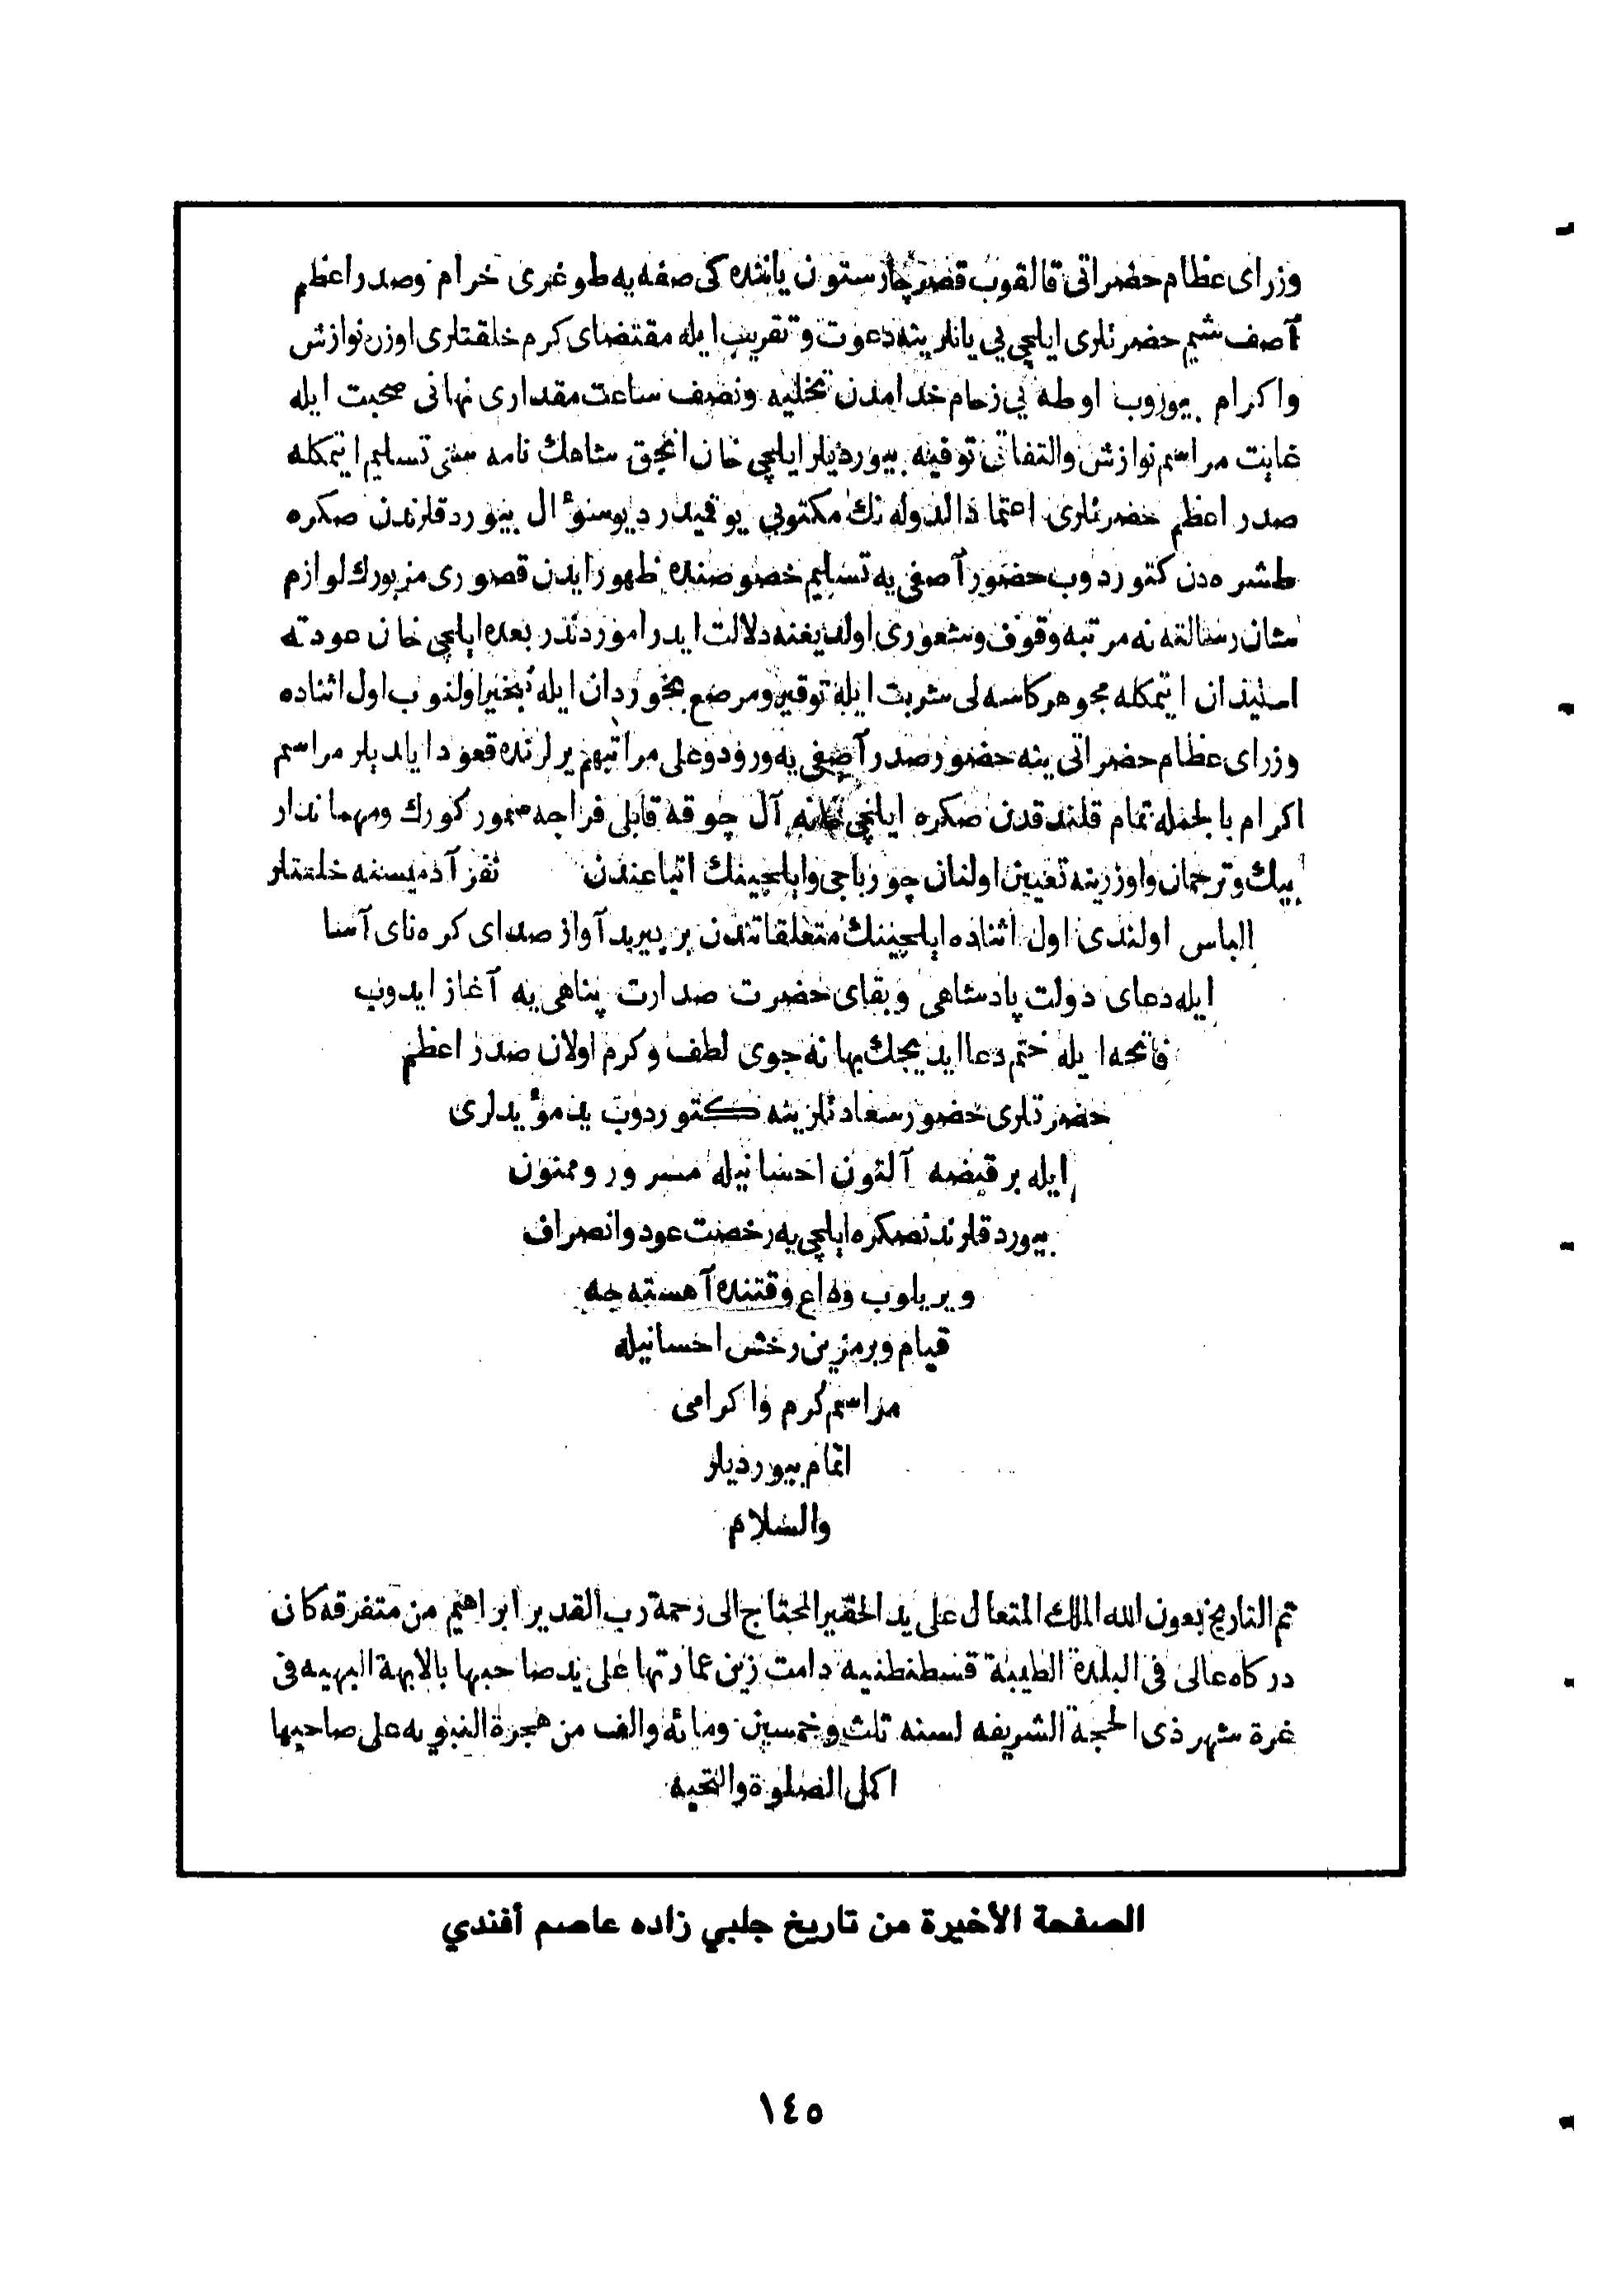 وزرای عظام حضراتی قالقوب قصر چارستون یاننده کی صفه یه طوغری خرام وصدر اعظم
آصف شیم حضرتلری ایلچی یی یانلرینه دعوت و تقریب ایله مقتضای کرم خلقتلری اوزن نوازش
واکرام بیوروب اوطه یی زحام خدامدن تخلیه ونصف ساعت مقداری نهانی صحبت ایله
غایت مراسم نوازش والتفاتی توفیه بیوردیلر ایلچی خان انجق شاهك نامه سنی تسلیم ایتمکله
صدر اعظم حضرتلری اعتماد الدوله نك مکتوبی یوقمیدر دیو سؤال بیوردقلرندن صکره
طشره دن کتوردوب حضور آصفی یه تسلیم خصوصنده ظهور ایدن قصوری مزبورك لوازم
شان رسالته نه مرتبه وقوف وشعوری اولدیغنه دلالت ایدر اموردندر بعده ایلچی خان عودته
استیذان ایتمکله مجوهر کاسه لی شربت ایله توقیر ومرصع بخوردان ایله تبخیر اولنوب اول اثناده
وزرای عظام حضراتی ینه حضور صدر آصفی یه ورود وعلی مراتبهم یرلرنده قعود ایلدیلر مراسم
اکرام بالجمله تمام قلندقدن صکره ایلچی خانه آل چوقه قابلی فراجه سمور کورك ومهماندار
بیك وترجمان واوزرینه تعیین اولنان چورباجی وایلچینك اتباعندن نفر آدمیسنه خلعتلر
الباس اولندی اول اثناده ایلچیننك متعلقاتندن بر پیر بد آواز صدای کره نای آسا
ایله دعای دولت پادشاهی وبقای حضرت صدارت پناهی یه آغاز ایدوب
فاتحه ایله ختم دعا ایدیجك بهانه جوی لطف وکرم اولان صدر اعظم
حضرتلری حضور سعادتلرینه کتوردوب ید مؤیدلری
ایله بر قبضه آلتون احسانیله مسرور وممنون
بیوردقلرندنصکره ایلچی یه رخصت عود وانصراف
ویریلوب وداع وقتنده آهسته جه
قیام وبر مزین رخش احسانیله
مراسم کرم واکرامی
اتمام بیوردیلر
والسلام
تم التاریخ بعون الله الملك المتعال علی ید الحقیر المحتاج الی رحمة رب القدیر ابراهیم من متفرقه کان
درکاه عالی فی البلدة الطیبة قسطنطنیه دامت زین عمارتها علی ید صاحبها بالابهة البهیه فی
غرة شهر ذی الحجة الشریفه لسنه ثلث وخمسین ومائه والف من هجرة النبویه علی صاحبها
اکمل الصلوة والتحیه
الصفحة الأخيرة من تاريخ جلبي زاده عاصم أفندي
١٤٥